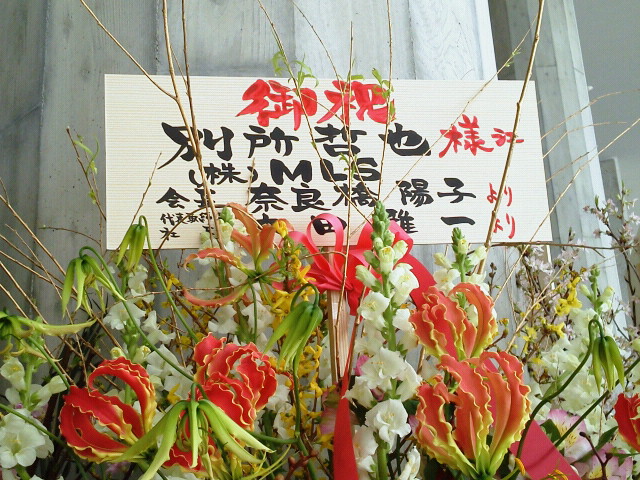 御祝
別所哲也様江
(株)MLS
会長 奈良橋陽子より
代表取
雅一より